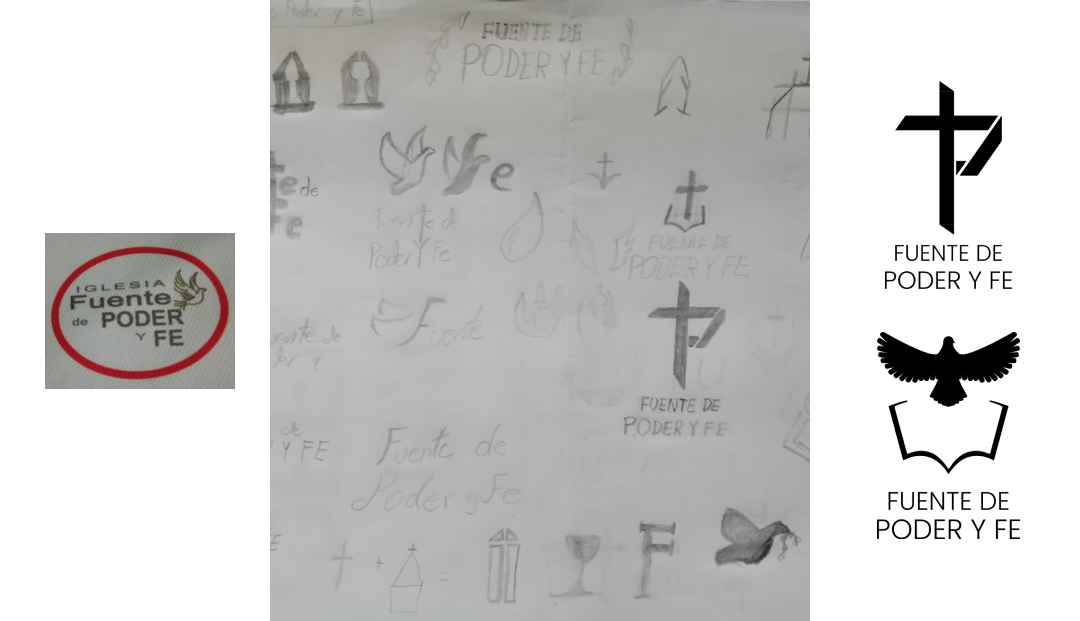 IGLESIA
Fuente
de PODER
Y FE
Poder y Fe
FUENTE DE
PODER Y FE
Fe
e de
Fe
Fuente de
Poder y Fe
FUENTE DE
PODER Y FE
Fuente
FUENTE DE
PODER Y FE
de
Y FE
Fuente de
Poder y Fe
F
FUENTE DE
PODER Y FE
FUENTE DE
PODER Y FE